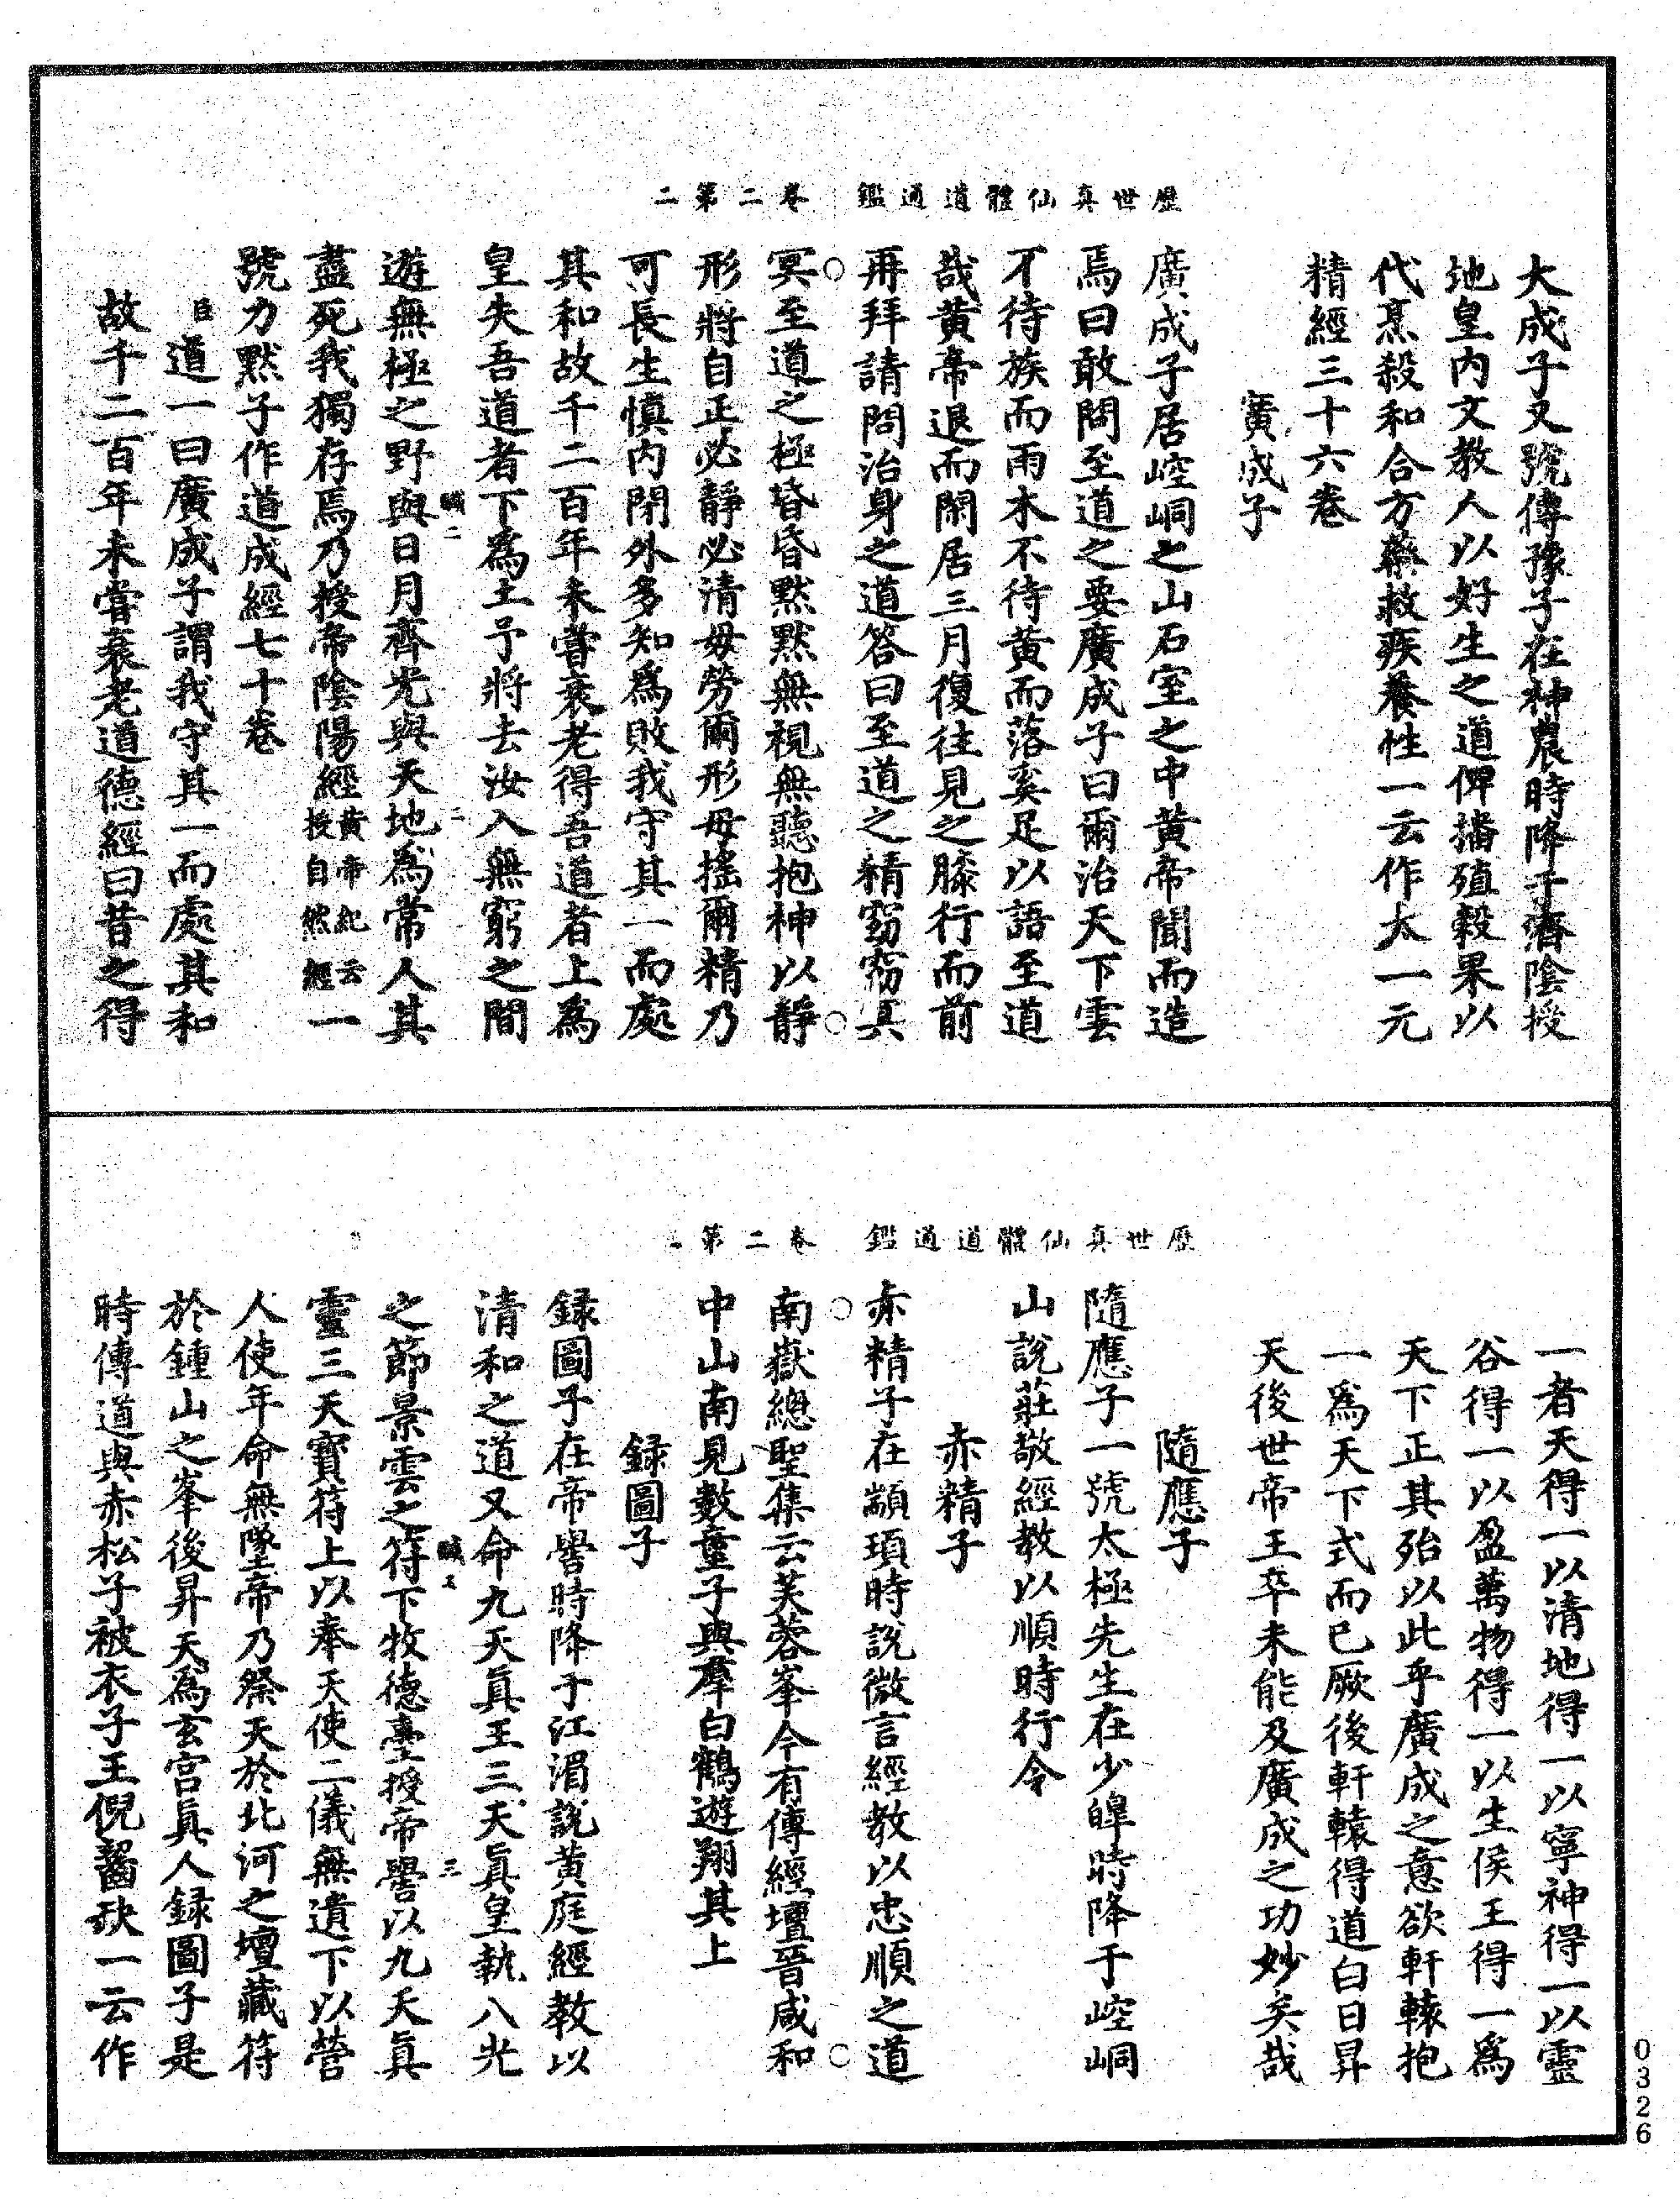 歷世真仙體道通鑑 卷二 第二
大成子又號傳豫子在神農時降于濟陰授
地皇內文教人以好生之道俾播殖穀果以
代烹殺和合方藥救疾養性一云作太一元
精經三十六卷
廣成子
廣成子居崆峒之山石室之中黃帝聞而造
焉曰敢問至道之要廣成子曰爾治天下雲
不待族而雨木不待黃而落奚足以語至道
哉黃帝退而閑居三月復往見之膝行而前
再拜請問治身之道答曰至道之精窈窈冥
冥至道之極昏昏默默無視無聽抱神以靜
形將自正必靜必清毋勞爾形毋搖爾精乃
可長生慎內閉外多知為敗我守其一而處
其和故千二百年未嘗衰老得吾道者上為
皇失吾道者下為土予將去汝入無窮之間
遊無極之野與日月齊光與天地為常人其
盡死我獨存焉乃授帝陰陽經黃帝紀云授自然經一
號力默子作道成經七十卷
臣道一曰廣成子謂我守其一而處其和
故千二百年未嘗衰老道德經曰昔之得
歷世真仙體道通鑑 卷二 第
一者天得一以清地得一以寧神得一以靈
谷得一以盈萬物得一以生侯王得一為
天下正其殆以此乎廣成之意欲軒轅抱
一為天下式而已厥後軒轅得道白日昇
天後世帝王卒未能及廣成之功妙矣哉
隨應子
隨應子一號太極先生在少皞時降于崆峒
山說莊敬經教以順時行令
赤精子
赤精子在顓頊時說微言經教以忠順之道
南嶽總聖集云芙蓉峯今有傳經壇晉咸和
中山南見數童子與羣白鶴遊翔其上
録圖子
録圖子在帝嚳時降于江湄說黃庭經教以
清和之道又命九天真王三天真皇執八光
之節景雲之符下牧德臺授帝嚳以九天真
靈三天寶符上以奉天使二儀無遺下以營
人使年命無墜帝乃祭天於北河之壇藏符
於鍾山之峯後昇天為玄宮真人録圖子是
時傳道與赤松子被衣子王倪齧缺一云作
0326